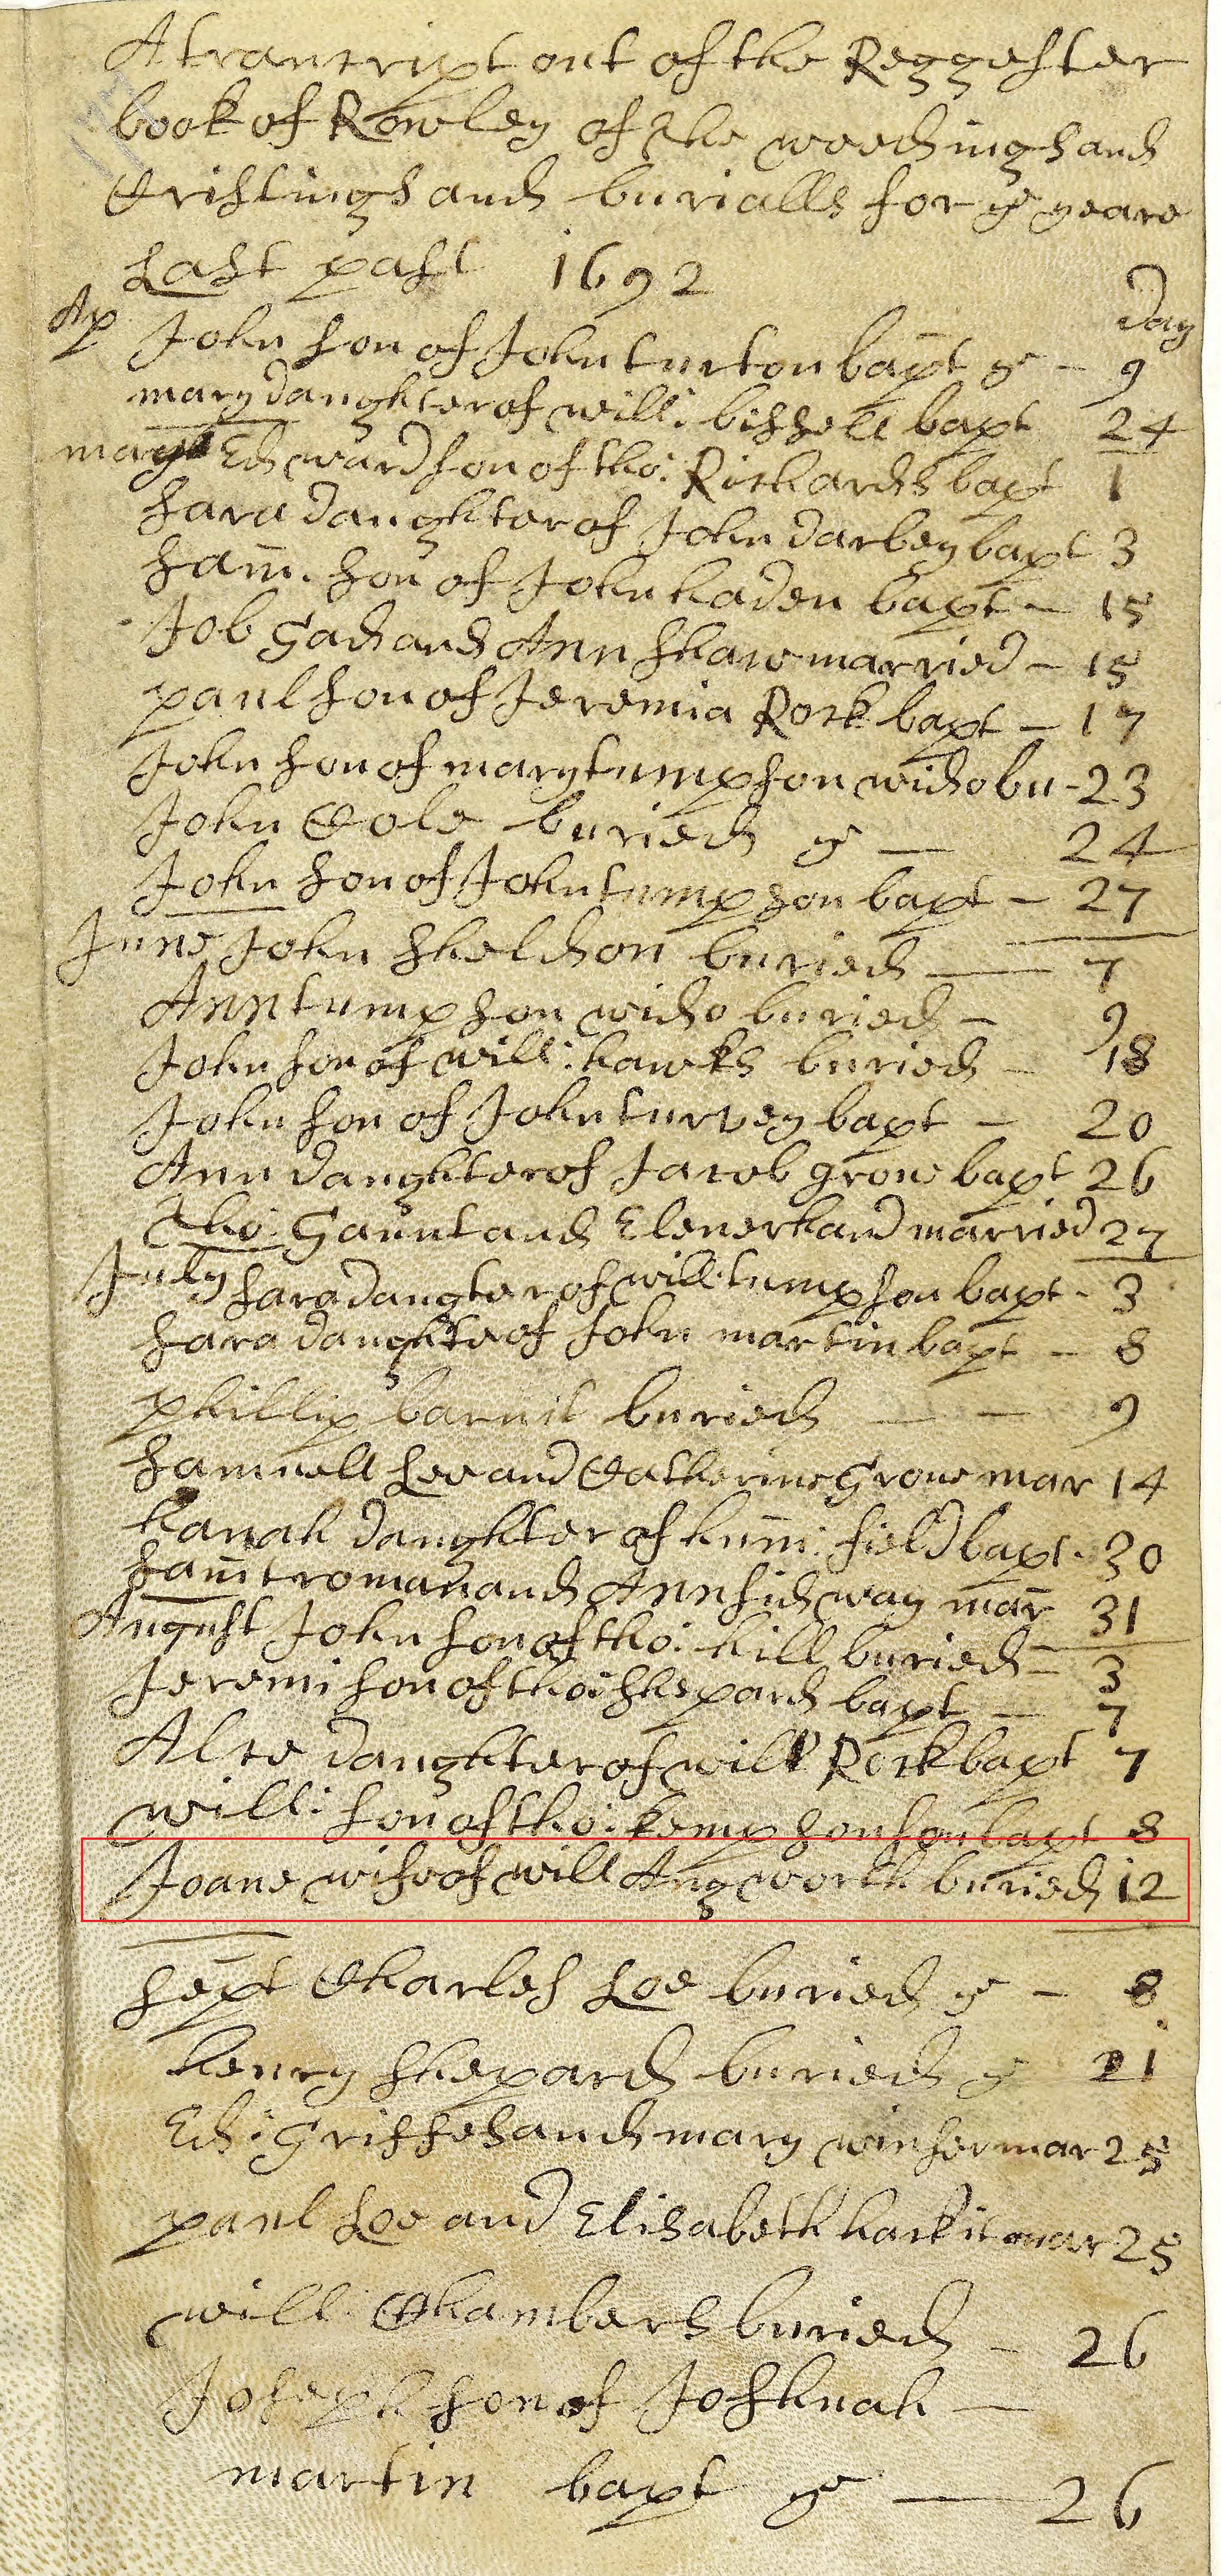 A trantript out of the Reggester
book of Rowley of the weedings and
Cristings and burialls for ye yeare
Last past 1692
Day
Ap John son of John turton bapt ye - 9
mary daughter of will: bissell bapt 24
may Edward son of tho: Richards bapt 1
sara daughter of John darbey bapt 3
sam. son of John haden bapt - 15
Job Gad and Ann shaw married - 15
paul son of Jeremia Rock bapt - 17
John son of mary tumpson wido bu - 23
John Cole buried ye — 24
John son of John tumpson bapt - 27
June John sheldson buried — 7
Ann tumpson wido buried - 9
John son of will: hawks buried - 18
John son of John turvey bapt - 20
Ann daughter of Jacob grove bapt 26
Tho: Gaunt and Elener hand married 27
July sara daugter of will: tumpson bapt - 3
sara daughter of John martin bapt - 8
phillip barnit buried — - 9
samuell Lee and Catherine Grove mar 14
hanah daughter of hum: field bapt - 30
sam troman and Ann sidway mar 31
August John son of tho: hill buried - 3
Jeremi son of tho: shepard bapt - 7
Alce daughter of will Rock bapt 7
will: son of tho: kempson son bapt 8
Joane wife of will Angworth buried 12
sept Charles Loe buried ye - 8
henry shepard buried ye 21
Ed: Griffes and mary winser mar 25
paul Loe and Elisabeth hackit mar 25
will: Chambers buried - 26
Joseph son of Joshuah —
martin bapt ye — 26